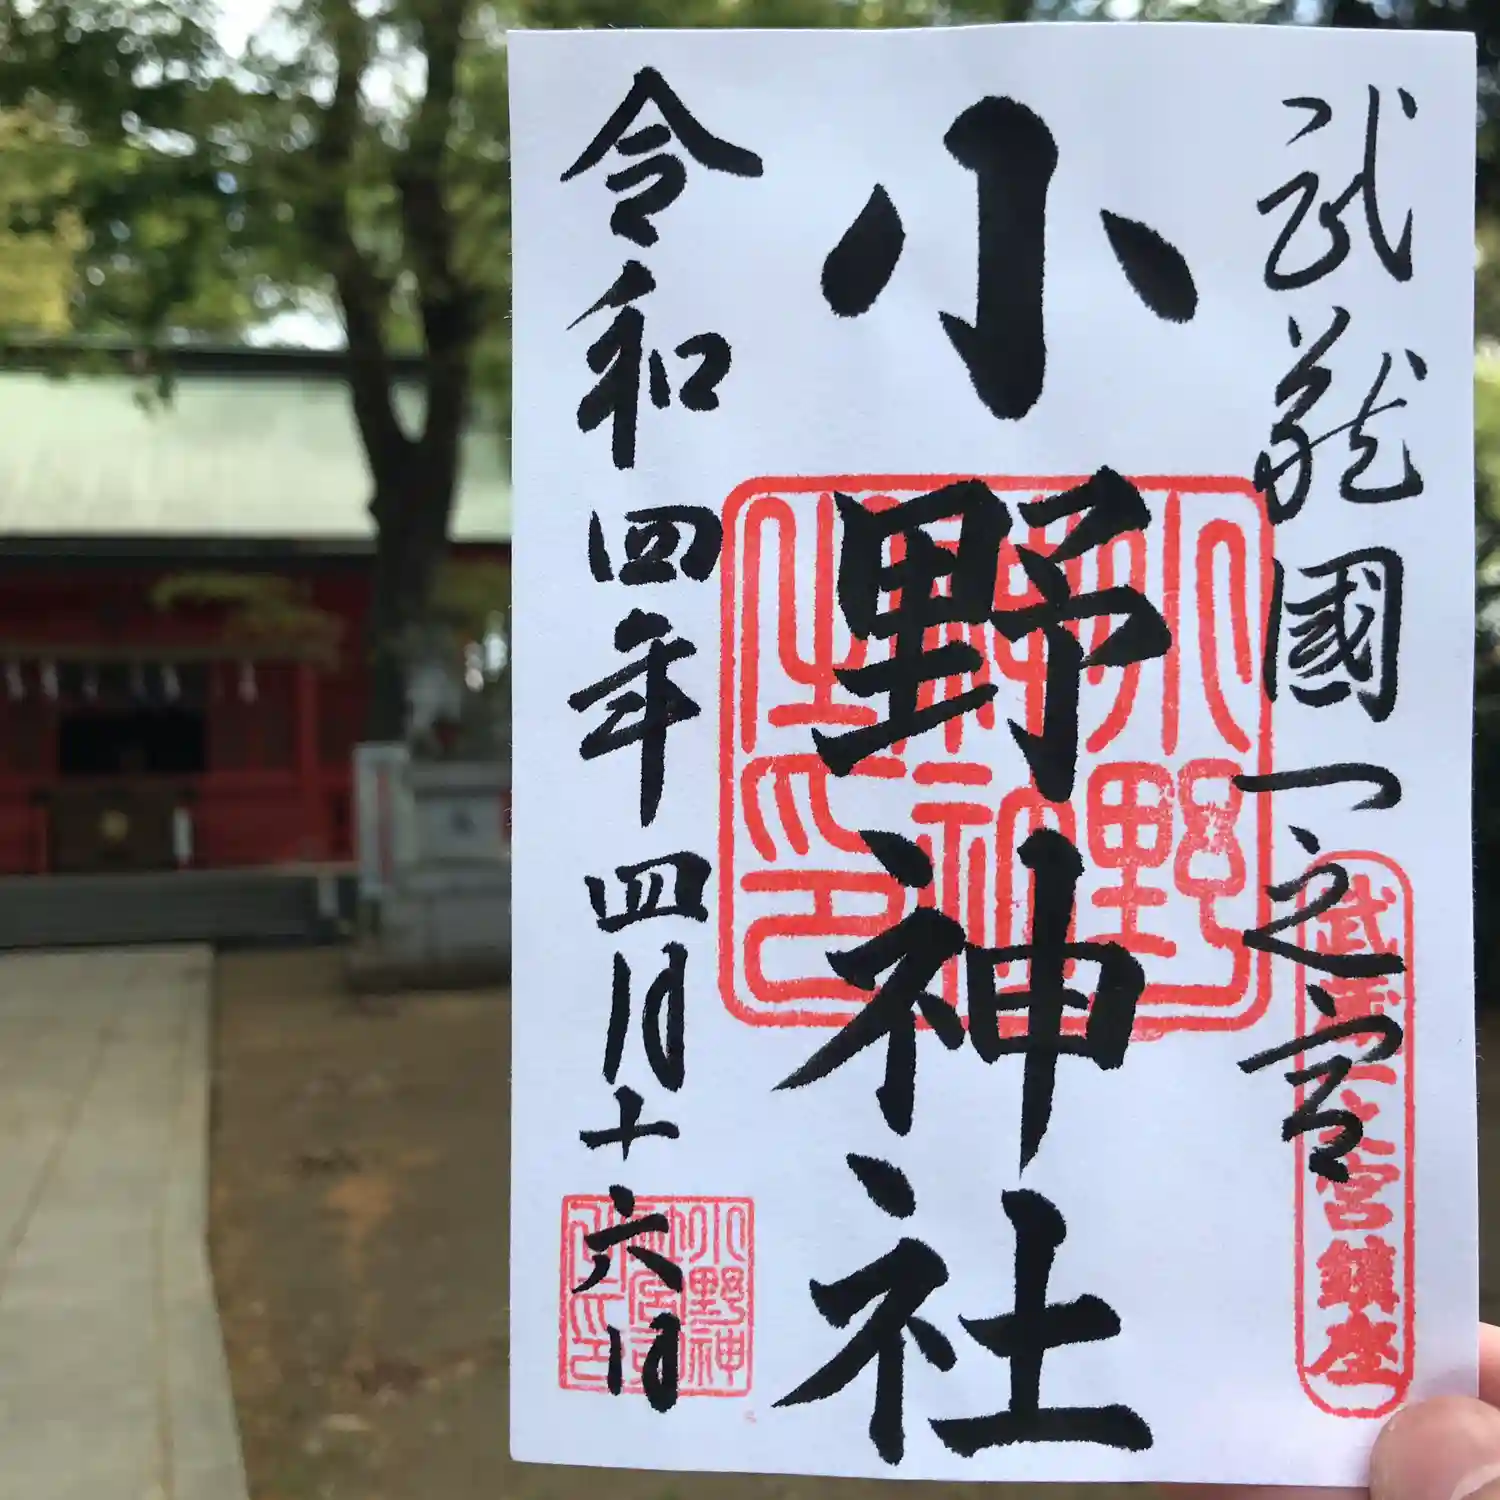 武蔵國一之宮
小野神社
令和四年四月十六日
小野神社之印
武蔵一之宮鎮座
小野神